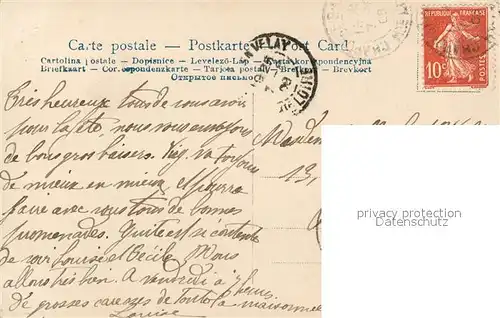 Carte postale – Postkarte – Post Card
Cartolina postale – Dopisnice – Levelező-Lap – korespondencyjna
Briefkaart – Correspondenzkarte – Tarjeta postal – Brevkort – Brevkort
Открытое письмо
VELAY
RÉPUBLIQUE FRANÇAISE
10c
POSTES
Très heureux tous de vous avoir
pour la fête, nous vous envoyons
de bons gros baisers. va toujours
de mieux en mieux, et pourra
faire avec vous tous de bonnes
promenades. se contente
de voir et Cécile. Nous
allons très bien. A vendredi à 7 heures
de grosses caresses de toute la maisonnée
Louise
13,
privacy protection
Datenschutz